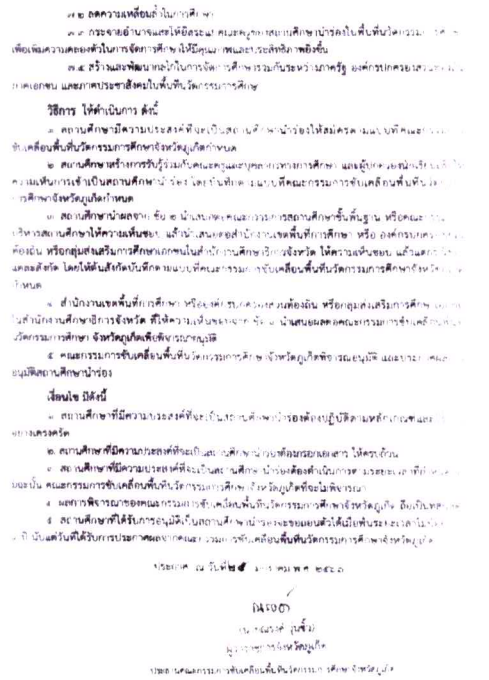 ๗.๒ ลดความเหลื่อมล้ำในการศึกษา
๗.๓ กระจายอำนาจและให้อิสระแก่ คณะครูของสถานศึกษานำร่องในพื้นที่นวัตกรรมการศึกษา
เพื่อเพิ่มความคล่องตัวในการจัดการศึกษา ให้มีคุณภาพและประสิทธิภาพยิ่งขึ้น
๗.๔ สร้างและพัฒนากลไกในการจัดการศึกษาร่วมกันระหว่างภาครัฐ องค์กรปกครองส่วนท้องถิ่น
ภาคเอกชน และภาคประชาสังคมในพื้นที่นวัตกรรมการศึกษา
วิธีการ ให้ดำเนินการ ดังนี้
๑ สถานศึกษามีความประสงค์ที่จะเป็นสถานศึกษานำร่องให้สมัครตามแบบที่คณะกรรมการ
ขับเคลื่อนพื้นที่นวัตกรรมการศึกษาจังหวัดภูเก็ตกำหนด
๒ สถานศึกษาสร้างการรับรู้ร่วมกับคณะครูและบุคลากรทางการศึกษา และผู้ปกครองนักเรียน
ความเห็นการเข้าเป็นสถานศึกษานำร่อง โดยบันทึกตามแบบที่คณะกรรมการขับเคลื่อนพื้นที่นวัตกรรม
การศึกษาจังหวัดภูเก็ตกำหนด
๓ สถานศึกษานำผลจาก ข้อ ๒ นำเสนอต่อคณะกรรมการสถานศึกษาขั้นพื้นฐาน หรือคณะกรรมการ
บริหารสถานศึกษาให้ความเห็นชอบ แล้วนำเสนอต่อสำนักงานเขตพื้นที่การศึกษา หรือ องค์กรปกครองส่วน
ท้องถิ่น หรือกลุ่มส่งเสริมการศึกษาเอกชนในสำนักงานศึกษาธิการจังหวัด ให้ความเห็นชอบ
แต่ละสังกัด โดยให้ต้นสังกัดบันทึกตามแบบที่คณะกรรมการขับเคลื่อนพื้นที่นวัตกรรมการศึกษาจังหวัด
กำหนด
๔ สำนักงานเขตพื้นที่การศึกษา หรือองค์กรปกครองส่วนท้องถิ่น หรือกลุ่มส่งเสริมการศึกษาเอกชน
ในสำนักงานศึกษาธิการจังหวัด ที่ให้ความเห็นชอบจาก ข้อ ๓ นำเสนอผลต่อคณะกรรมการขับเคลื่อนพื้นที่
นวัตกรรมการศึกษา จังหวัดภูเก็ตเพื่อพิจารณาอนุมัติ
๕ คณะกรรมการขับเคลื่อนพื้นที่นวัตกรรมการศึกษาจังหวัดภูเก็ตพิจารณอนุมัติ และประกาศผล
อนุมัติสถานศึกษานำร่อง
เงื่อนไข มีดังนี้
๑ สถานศึกษาที่มีความประสงค์ที่จะเป็นสถานศึกษานำร่องต้องปฏิบัติตามหลักเกณฑ์และ
อย่างเคร่งครัด
๒. สถานศึกษาที่มีความประสงค์ที่จะเป็นสถานศึกษานำร่องต้องกรอกเอกสาร ให้ครบถ้วน
๓ สถานศึกษาที่มีความประสงค์ที่จะเป็นสถานศึกษานำร่องต้องดำเนินการตามระยะเวลาที่กำหนด
มิฉะนั้น คณะกรรมการขับเคลื่อนพื้นที่นวัตกรรมการศึกษาจังหวัดภูเก็ตที่จะไม่พิจารณา
๔ ผลการพิจารณาของคณะกรรมการขับเคลื่อนพื้นที่นวัตกรรมการศึกษาจังหวัดภูเก็ต ถือเป็นที่สุด
๕ สถานศึกษาที่ได้รับการอนุมัติเป็นสถานศึกษานำร่องจะขอถอนตัวได้เมื่อพ้นระยะเวลาไม่น้อย
๓ ปี นับแต่วันที่ได้รับการประกาศผลจากคณะกรรมการขับเคลื่อนพื้นที่นวัตกรรมการศึกษาจังหวัดภูเก็ต
ประกาศ ณ วันที่ ๒๕ มกราคม พ.ศ. ๒๕๖๖
ผู้ว่าราชการจังหวัดภูเก็ต
ประธานคณะกรรมการขับเคลื่อนพื้นที่นวัตกรรมการศึกษาจังหวัดภูเก็ต